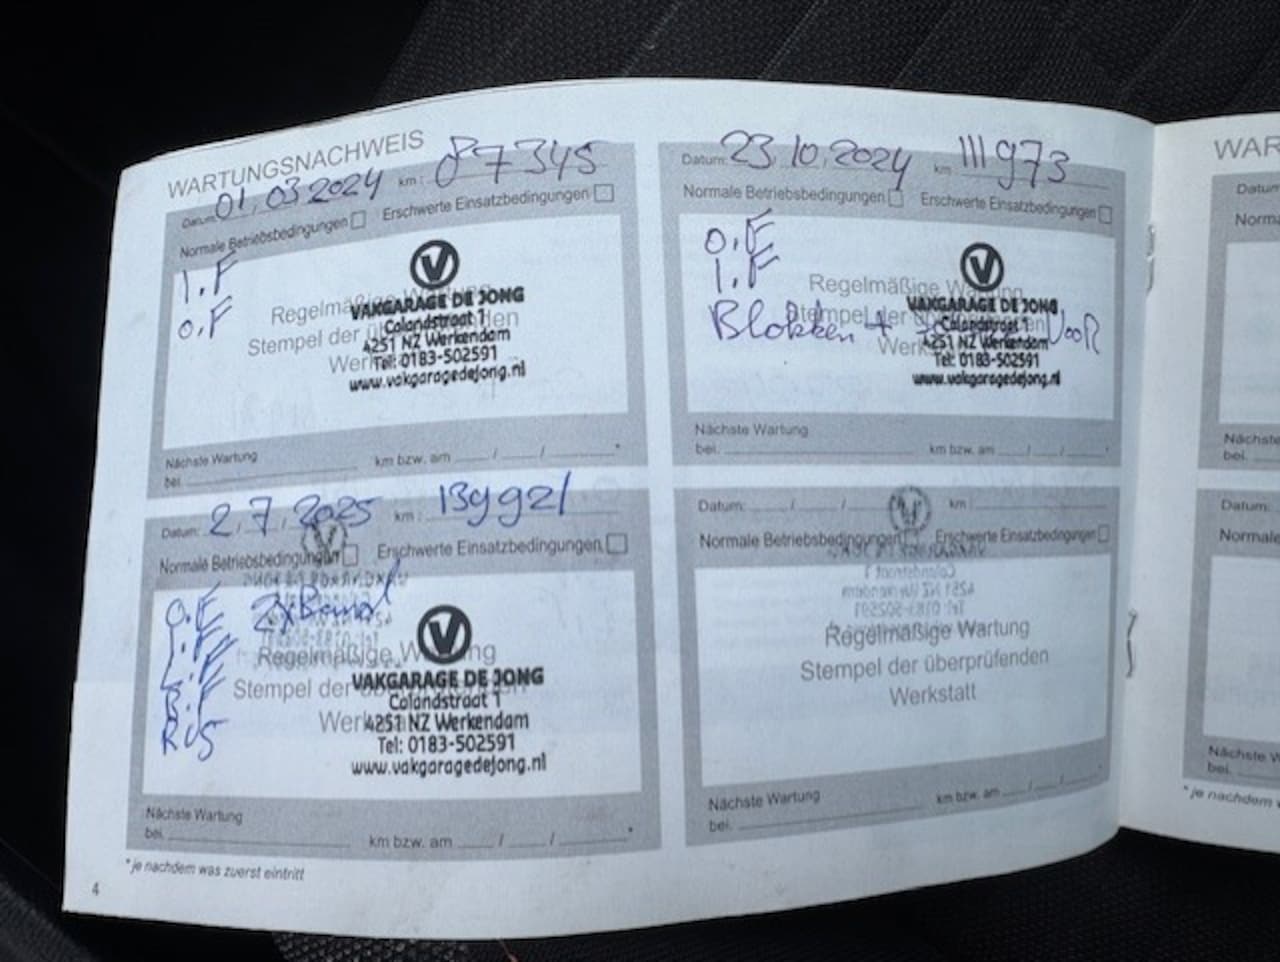 WARTUNGSNACHWEIS
Datum: 01.03 2024 km: 87345
Normale Betriebsbedingungen Erschwerte Einsatzbedingungen
I.F
O.F
Regelmäßige Wartung
Stempel der überprüfenden
Werkstatt
VAKGARAGE DE JONG
Calandstraat 1
4251 NZ Werkendam
Tel: 0183-502591
www.vakgaragedejong.nl
Nächste Wartung
bei. km bzw. am / / *
Datum: 23.10.2024 km 111973
Normale Betriebsbedingungen Erschwerte Einsatzbedingungen
O.F
I.F
Blokken + VooR
Regelmäßige Wartung
Stempel der überprüfenden
Werkstatt
VAKGARAGE DE JONG
Calandstraat 1
4251 NZ Werkendam
Tel: 0183-502591
www.vakgaragedejong.nl
Nächste Wartung
bei. km bzw. am / / *
Datum: 2.7/2025 km: 139921
Normale Betriebsbedingungen Erschwerte Einsatzbedingungen
O.F 2x Band
I.F
L.F
B.F
RVS
Regelmäßige Wartung
Stempel der überprüfenden
Werkstatt
VAKGARAGE DE JONG
Calandstraat 1
4251 NZ Werkendam
Tel: 0183-502591
www.vakgaragedejong.nl
Nächste Wartung
bei. km bzw. am / / *
Datum: / / km:
Normale Betriebsbedingungen Erschwerte Einsatzbedingungen
Regelmäßige Wartung
Stempel der überprüfenden
Werkstatt
Nächste Wartung
bei. km bzw. am / / *
* je nachdem was zuerst eintritt
4
WAR
Datum
Norma
Nächste
bei.
Datum:
Normale
Nächste W
bei.
* je nachdem